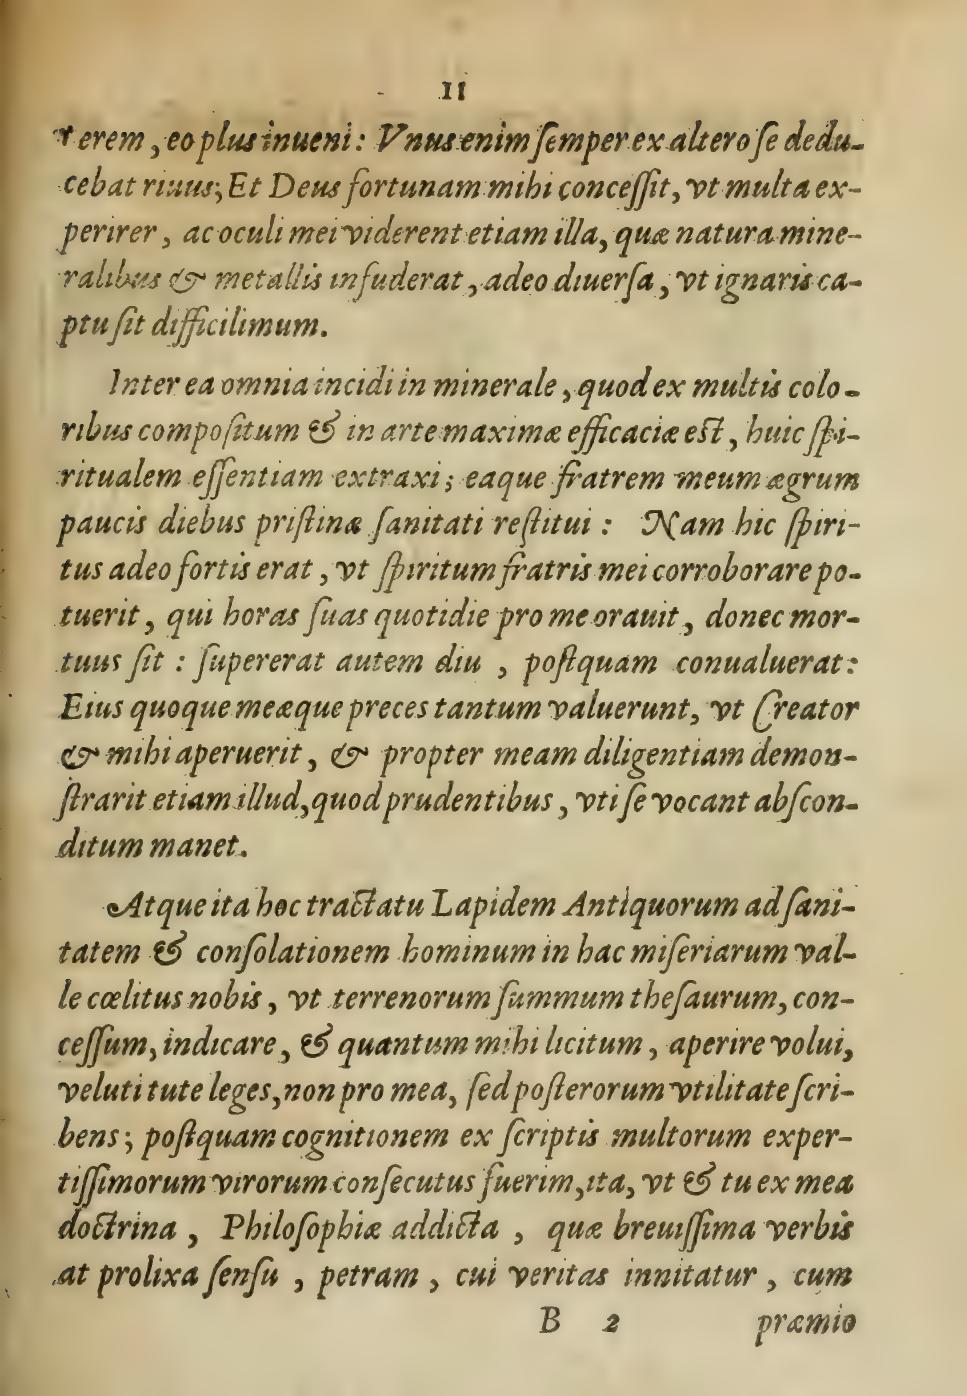 11
rerem, eo plus inueni: Vnus enim ſemper ex altero ſe dedu-
cebat riuus; Et Deus fortunam mihi conceſſit, vt multa ex-
perirer, ac oculi mei viderent etiam illa, quæ natura mine-
ralibus & metallis infuderat, adeo diuerſa, vt ignaris ca-
ptu ſit difficilimum.
Inter ea omnia incidi in minerale, quod ex multis colo-
ribus compoſitum & in arte maximæ efficaciæ eſt, huic ſpi-
ritualem eſſentiam extraxi; eaque fratrem meum ægrum
paucis diebus priſtinæ ſanitati reſtitui: Nam hic ſpiri-
tus adeo fortis erat, vt ſpiritum fratris mei corroborare po-
tuerit, qui horas ſuas quotidie pro me orauit, donec mor-
tuus ſit: ſupererat autem diu, poſtquam conualuerat:
Eius quoque meæque preces tantum valuerunt, vt Creator
& mihi aperuerit, & propter meam diligentiam demon-
ſtrarit etiam illud, quod prudentibus, vti ſe vocant abſcon-
ditum manet.
Atque ita hoc tractatu Lapidem Antiquorum ad ſani-
tatem & conſolationem hominum in hac miſeriarum val-
le cœlitus nobis, vt terrenorum ſummum theſaurum, con-
ceſſum, indicare, & quantum mihi licitum, aperire volui,
veluti tute leges, non pro mea, ſed poſterorum vtilitate ſcri-
bens; poſtquam cognitionem ex ſcriptis multorum exper-
tiſſimorum virorum conſecutus fuerim, ita, vt & tu ex mea
doctrina, Philoſophiæ addicta, quæ breuiſſima verbis
at prolixa ſenſu, petram, cui veritas innitatur, cum
B 2 præmio